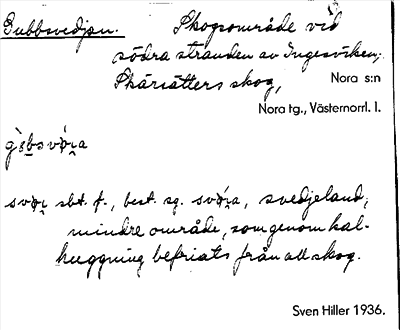 Gubbsvedjan. Skogsområde vid
södra stranden av Ingesviken;
Skärsätters skog, Nora s:n
Nora tg., Västernorrl. l.
sbt. f., best. sg. svedjeland,
mindre område, som genom kal-
huggning befriats från all skog.
Sven Hiller 1936.